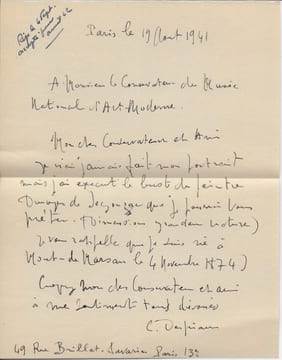 Rép. le 4 Sept.
Paris le 19 Aout 1941
A Monsieur le Conservateur du Musée
National d'Art Moderne.
Mon cher Conservateur et Ami
je n'ai jamais fait mon portrait
mais j'ai executé le buste du peintre
Dunoyer de Segonzac que je pourrai vous
prêter. (Dimension grandeur nature)
Je vous rappelle que je suis né à
Mont-de-Marsan le 4 Novembre 1874)
Croyez mon cher Conservateur et ami
à mes sentiments tout dévoués
C. Despiau
49 Rue Brillat-Savarin Paris 13e